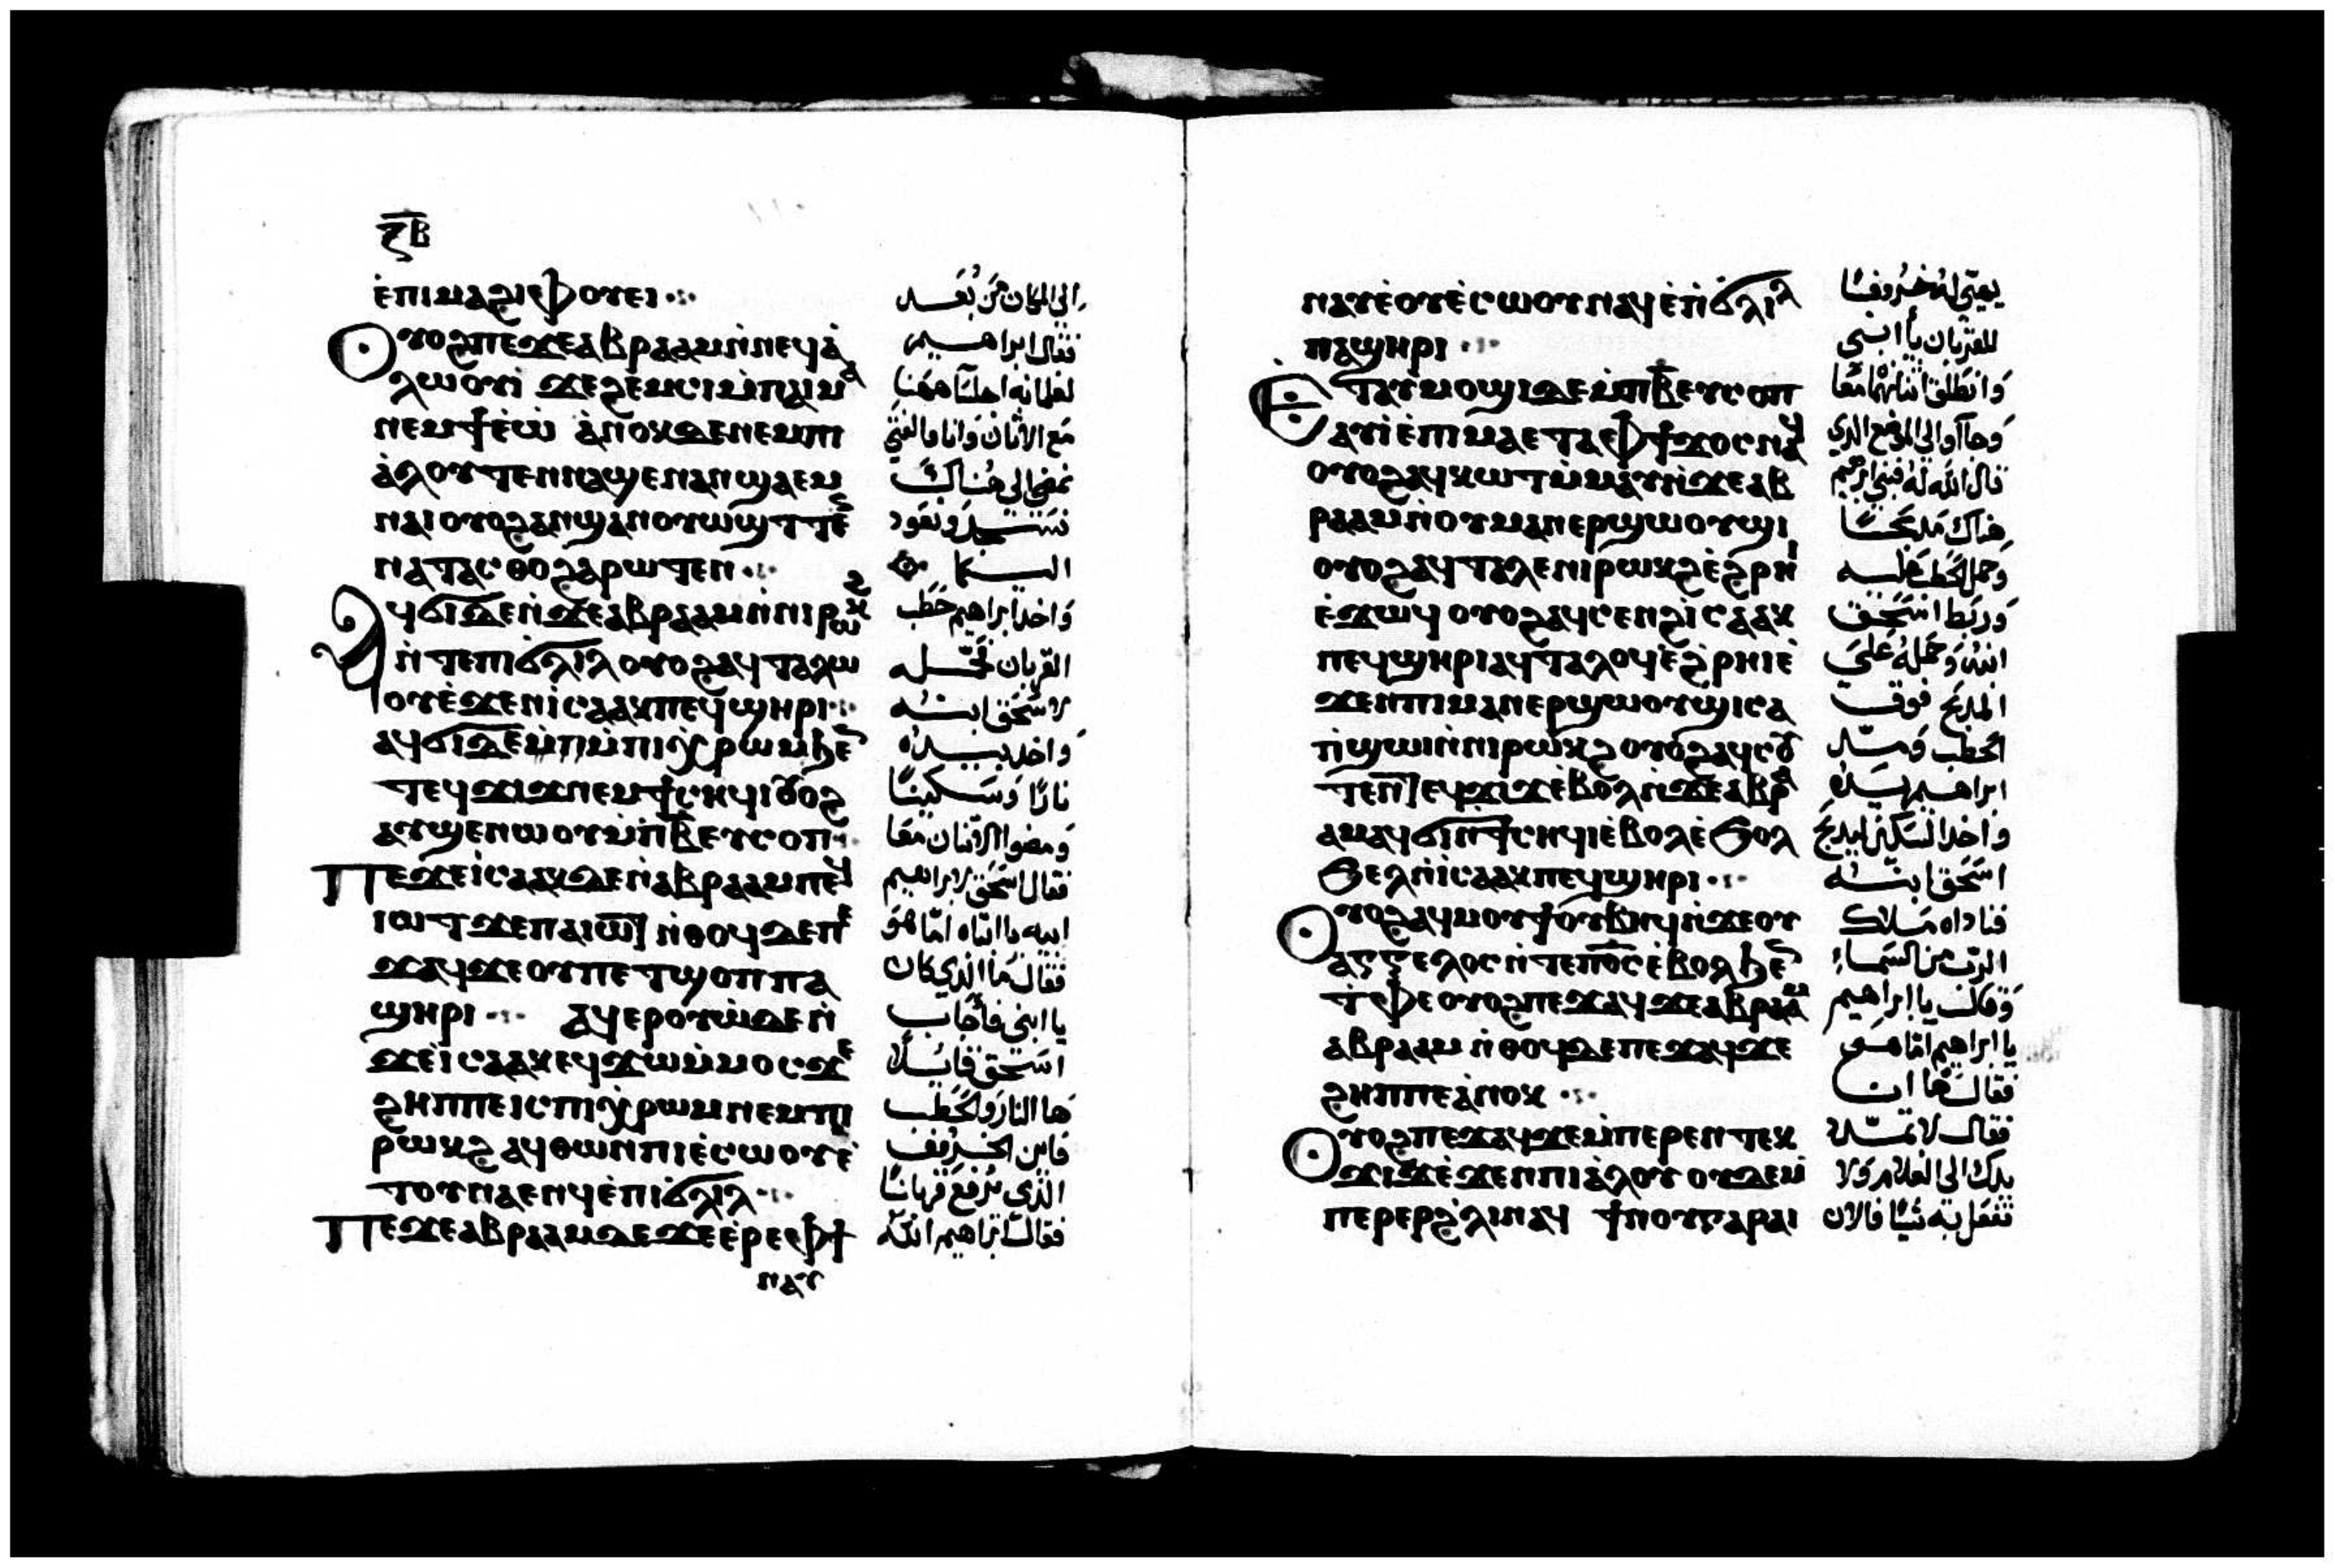 ⲝ̅ⲃ̅
ⲉ̀ⲡⲓⲙⲁϩⲓⲉⲫⲟⲩⲉⲓ
ⲟⲩⲟϩⲡⲉϫⲉⲁⲃⲣⲁⲁⲙⲛ̀ⲛⲉϥⲁ̀
ⲗⲱⲟⲩⲓ̀ ϫⲉϩⲉⲙⲥⲓⲙ̀ⲡⲁⲓⲙⲁ
ⲛⲉⲙϯⲉ̀ⲱ̀ ⲁ̀ⲛⲟⲕⲇⲉⲛⲉⲙⲡⲓ
ⲁ̀ⲗⲟⲩⲧⲉⲛⲛⲁϣⲉⲛⲁⲛϣⲁⲉⲙ
ⲛⲁⲓⲟⲩⲟϩⲁⲛϣⲁⲛⲟⲩⲱϣⲧⲧⲉ
ⲛⲁⲧⲁⲥⲑⲟϩⲁⲣⲱⲧⲉⲛ
ⲁϥϭⲓⲇⲉⲛ̀ϫⲉⲁⲃⲣⲁⲁⲙⲛ̀ⲛⲓⲣⲱⲕϩ
ⲛ̀ⲧⲉⲡⲓϭⲗⲓⲗⲟⲩⲟϩⲁϥⲧⲁⲗⲱ
ⲟⲩⲉ̀ϫⲉⲛⲓ̀ⲥⲁⲁⲕⲡⲉϥϣⲏⲣⲓ
ⲁϥϭⲓⲇⲉⲙ̀ⲡⲙ̀ⲡⲓⲭ̀ⲣⲱⲙϧⲉⲛ
ⲧⲉϥϫⲓϫⲛⲉⲙϯⲥⲏϥⲓⲟⲩⲟϩ
ⲁⲩϣⲉⲛⲱⲟⲩⲙ̀ⲡ̀ⲃ̅ⲉⲩⲥⲟⲡ
ⲡⲉϫⲉⲓ̀ⲥⲁⲁⲕⲇⲉⲛ̀ⲁⲃⲣⲁⲁⲙⲡⲉϥ
ⲓⲱⲧϫⲉⲡⲁⲓⲱⲧ ⲛ̀ⲑⲟϥⲇⲉⲡⲉ
ϫⲁϥϫⲉⲟⲩⲡⲉⲧϣⲟⲡⲡⲁ
ϣⲏⲣⲓ ⲁϥⲉⲣⲟⲩⲱ̀ⲇⲉⲛ̀
ϫⲉⲓ̀ⲥⲁⲁⲕⲉϥϫⲱⲙ̀ⲙⲟⲥϫⲉ
ϩⲏⲡⲡⲉⲓⲥⲡⲓⲭ̀ⲣⲱⲙⲛⲉⲙⲡⲓ
ⲣⲱⲕϩ ⲁϥⲑⲱⲛⲡⲓⲉ̀ⲥⲱⲟⲩⲉ̀
ⲧⲟⲩⲛⲁⲉⲛϥⲉ̀ⲡⲓϭⲗⲓⲗ
ⲡⲉϫⲉⲁⲃⲣⲁⲁⲙⲇⲉϫⲉⲉ̀ⲣⲉⲫϯ
ⲛⲁⲩ
الى المكان من بُعد
فقال ابراهيم
لغلمانه اجلسا ههنا
مع الاتان وانا والفتى
نمضى الى هناك
نسجد ونعود
اليكما
واخذ ابراهيم حطب
القربان فحمله
لاسحق ابنه
واخذ بيده
نارًا وسكينًا
ومضوا الاثنان معا
فقال اسحق لابراهيم
ابيه يا ابتاه اما هو
فقال ما الذى كان
يا ابنى فأجاب
اسحق قايلًا
ها النار والحطب
فاين الخروف
الذى يُرفع قربانًا
فقال ابراهيم الله
ⲛⲁⲩⲉ̀ⲟⲩⲉ̀ⲥⲱⲟⲩⲛⲁϥⲉ̀ⲡ̀ϭⲗⲓⲗ
ⲡⲁϣⲏⲣⲓ
ⲉⲧⲁⲩⲙⲟϣⲓⲇⲉⲙ̀ⲡⲃ̅ⲉⲩⲥⲟⲡ
ⲁⲩⲓ̀ⲉ̀ⲡⲓⲙⲁⲉⲧⲁⲫϯϫⲟⲥⲛⲁϥ
ⲟⲩⲟϩⲁϥⲕⲱⲧⲙ̀ⲙⲁⲩⲛ̀ϫⲉⲁⲃ
ⲣⲁⲁⲙⲛ̀ⲟⲩⲙⲁⲛⲉⲣϣⲱⲟⲩϣⲓ
ⲟⲩⲟϩⲁϥⲧⲁⲗⲉⲛⲓⲣⲱⲕϩⲉ̀ϩⲣⲏⲓ
ⲉ̀ϫⲱϥ ⲟⲩⲟϩⲁϥⲥⲉⲛϩⲓ̀ⲥⲁⲁⲕ
ⲡⲉϥϣⲏⲣⲓⲁϥⲧⲁⲗⲟϥⲉ̀ϩ̀ⲣⲏⲓⲉ̀
ϫⲉⲛⲡⲓⲙⲁⲛⲉⲣϣⲱⲟⲩϣⲓⲥⲁ
ⲡ̀ϣⲱⲓⲛ̀ⲛⲓⲣⲱⲕϩⲟⲩⲟϩⲁϥⲥⲟⲩ
ⲧⲉⲛⲧⲉϥϫⲓϫⲉ̀ⲃⲟⲗⲛ̀ϫⲉⲁⲃⲣⲁ
ⲁⲙⲁϥϭⲓⲛ̀ϯⲥⲏϥⲓⲉ̀ⲃⲟⲗⲉ̀ϧⲟⲗ
ϧⲉⲗⲛ̀ⲓ̀ⲥⲁⲁⲕⲡⲉϥϣⲏⲣⲓ
ⲟⲩⲟϩⲁϥⲙⲟⲩϯⲟⲩⲃⲏϥⲛ̀ϫⲉⲟⲩ
ⲁⲅⲅⲉⲗⲟⲥⲛ̀ⲧⲉⲡⲟ̅ⲥ̅ⲉ̀ⲃⲟⲗϧⲉⲛ
ⲧ̀ⲫⲉⲟⲩⲟϩⲡⲉϫⲁϥϫⲉⲁⲃⲣⲁⲁⲙ
ⲁⲃⲣⲁⲁⲙ ⲛ̀ⲑⲟϥⲇⲉⲡⲉϫⲁϥϫⲉ
ϩⲏⲡⲡⲉⲁ̀ⲛⲟⲕ
ⲟⲩⲟϩⲡⲉϫⲁϥϫⲉⲙ̀ⲡⲉⲣⲉⲛⲧⲉⲕ
ϫⲓϫⲉ̀ϫⲉⲛⲡⲓⲁ̀ⲗⲟⲩ ⲟⲩⲇⲉⲙ̀
ⲡⲉⲣⲉⲣϩ̀ⲗⲓⲛⲁϥ ϯⲛⲟⲩⲅⲁⲣⲁⲓ
يعنى له خروفًا
للقربان يا ابنى
وانطلق اثنانهما معا
وجاآوا الى الموضع الذى
قال الله له فبنى ابرهيم
هناك مذبحًا
وحمل الحطب عليه
وربط اسحق
ابنه وحمله على
المذبح فوق
الحطب ومد
ابراهيم يده
واخذ السكين ليذبح
اسحق ابنه
فناداه ملاك
الرب من السماء
وقال يا ابراهيم
يا ابراهيم اما هو
فقال ها انا
فقال لا تمد
يدك الى الغلام ولا
تفعل به شيًا فالان